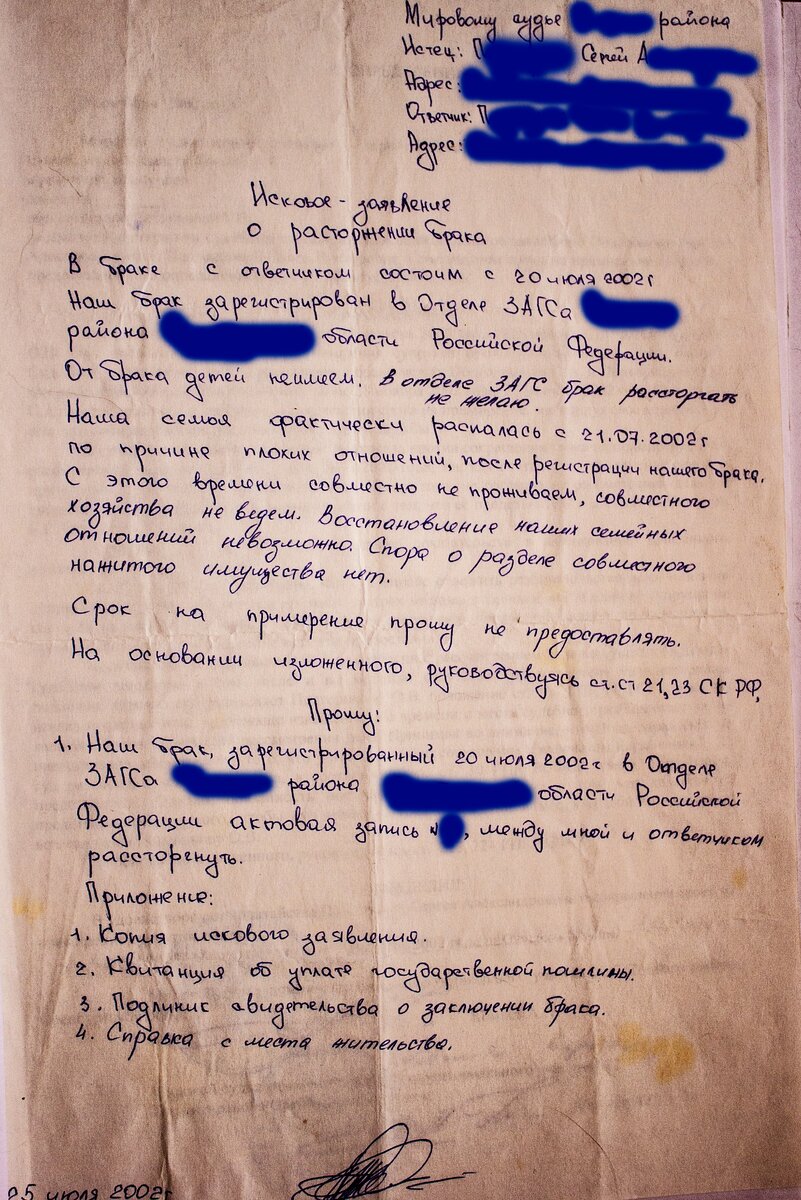 Мировому судье района
Истец: П Семей А
Адрес:
Ответчик: П
Адрес:
Исковое - заявление
о расторжении брака
В браке с ответчиком состоим с 20 июля 2002 г
Наш брак зарегистрирован в Отделе ЗАГСа
района области Российской Федерации.
От брака детей неимеем. В отделе ЗАГС брак рассторгать
не желаю.
Наша семья фактически распалась с 21.07.2002 г
по причине плохих отношений, после регистрации нашего брака.
С этого времени совместно не проживаем, совместного
хозяйства не ведем. Восстановление наших семейных
отношений невозможно. Спора о разделе совместного
нажитого имущества нет.
Срок на примерение прошу не предоставлять.
На основании изложенного, руководствуясь ст.ст 21,23 СК РФ,
Прошу:
1. Наш брак, зарегистрированный 20 июля 2002 г в Отделе
ЗАГСа района области Российской
Федерации актовая запись №, между мной и ответчиком
рассторгнуть.
Приложение:
1. Копия искового заявления.
2. Квитанция об уплате государственной пошлины.
3. Подлиник свидетельства о заключении брака.
4. Справка с места жительства.
25 июля 2002г